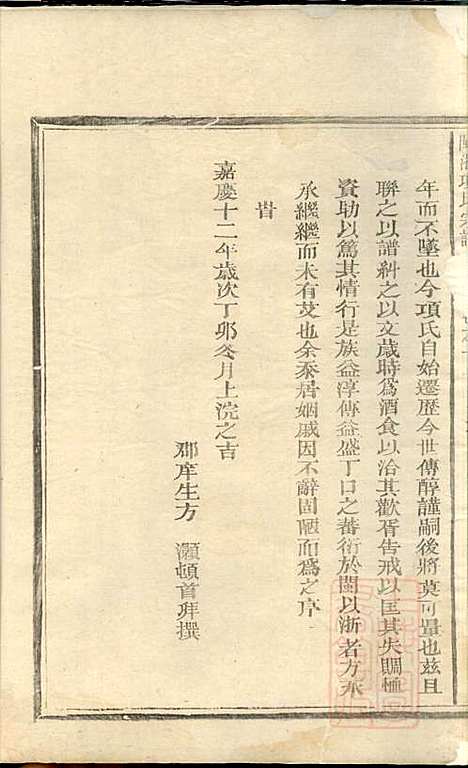 年而不墜也今項氏自始遷歷今世傳醇謹嗣後將莫可量也兹且
聯之以譜糾之以文歲時爲酒食以洽其歡胥告戒以匡其失賙恤
資助以篤其情行是族益淳傳益盛丁口之蕃衍於閩以浙者方來
承繼繼而未有艾也余忝居姻戚因不辭固陋而爲之序
旹
嘉慶十二年歲次丁卯冬月上浣之吉
郡庠生方灝頓首拜撰